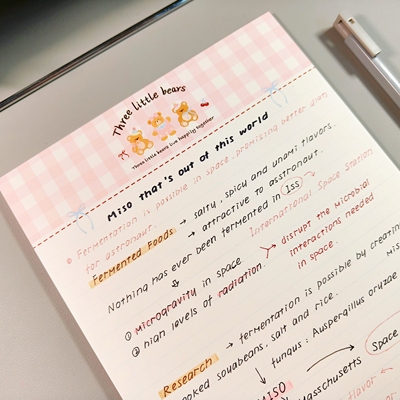 Three little bears
Three little bears live happily together
Miso that's out of this world
Fermentation is possible in space, promising better diets
for astronaut.
Fermented Foods → salty, spicy and unami flavors.
→ attractive to asstronaut.
Nothing has ever been fermented in Iss
International Space Station
① Microgravity in space
② hian levels of radiation.
disrupt the microbial
interactions needed
in space.
Research → fermentation is possible by creatin
mis
ooked souabeans, salt and rice.
fungus: Auspergillus oruzae
MISO
assachusetts
Space
flavor